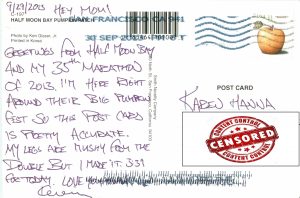 9/29/2013 HEY MOM!
HALF MOON BAY PUMPKIN
Photo by Ken Glaser, Jr.
Printed in Korea
SAN FRANCISCO CA 941
30 SEP
GREETINGS FROM HALF MOON BAY
AND MY 35TH MARATHON
OF 2013. I'M HERE RIGHT
AROUND THEIR BIG PUMPKIN
FEST SO THIS POST CARD
IS PRETTY ACCURATE.
MY LEGS ARE MUSHY FROM THE
DOUBLE BUT I MADE IT. 3:39
FOR TODAY. LOVE YOU
POST CARD
KAREN HANNA
CONTENT CONTROL
CENSORED
CONTENT CONTROL